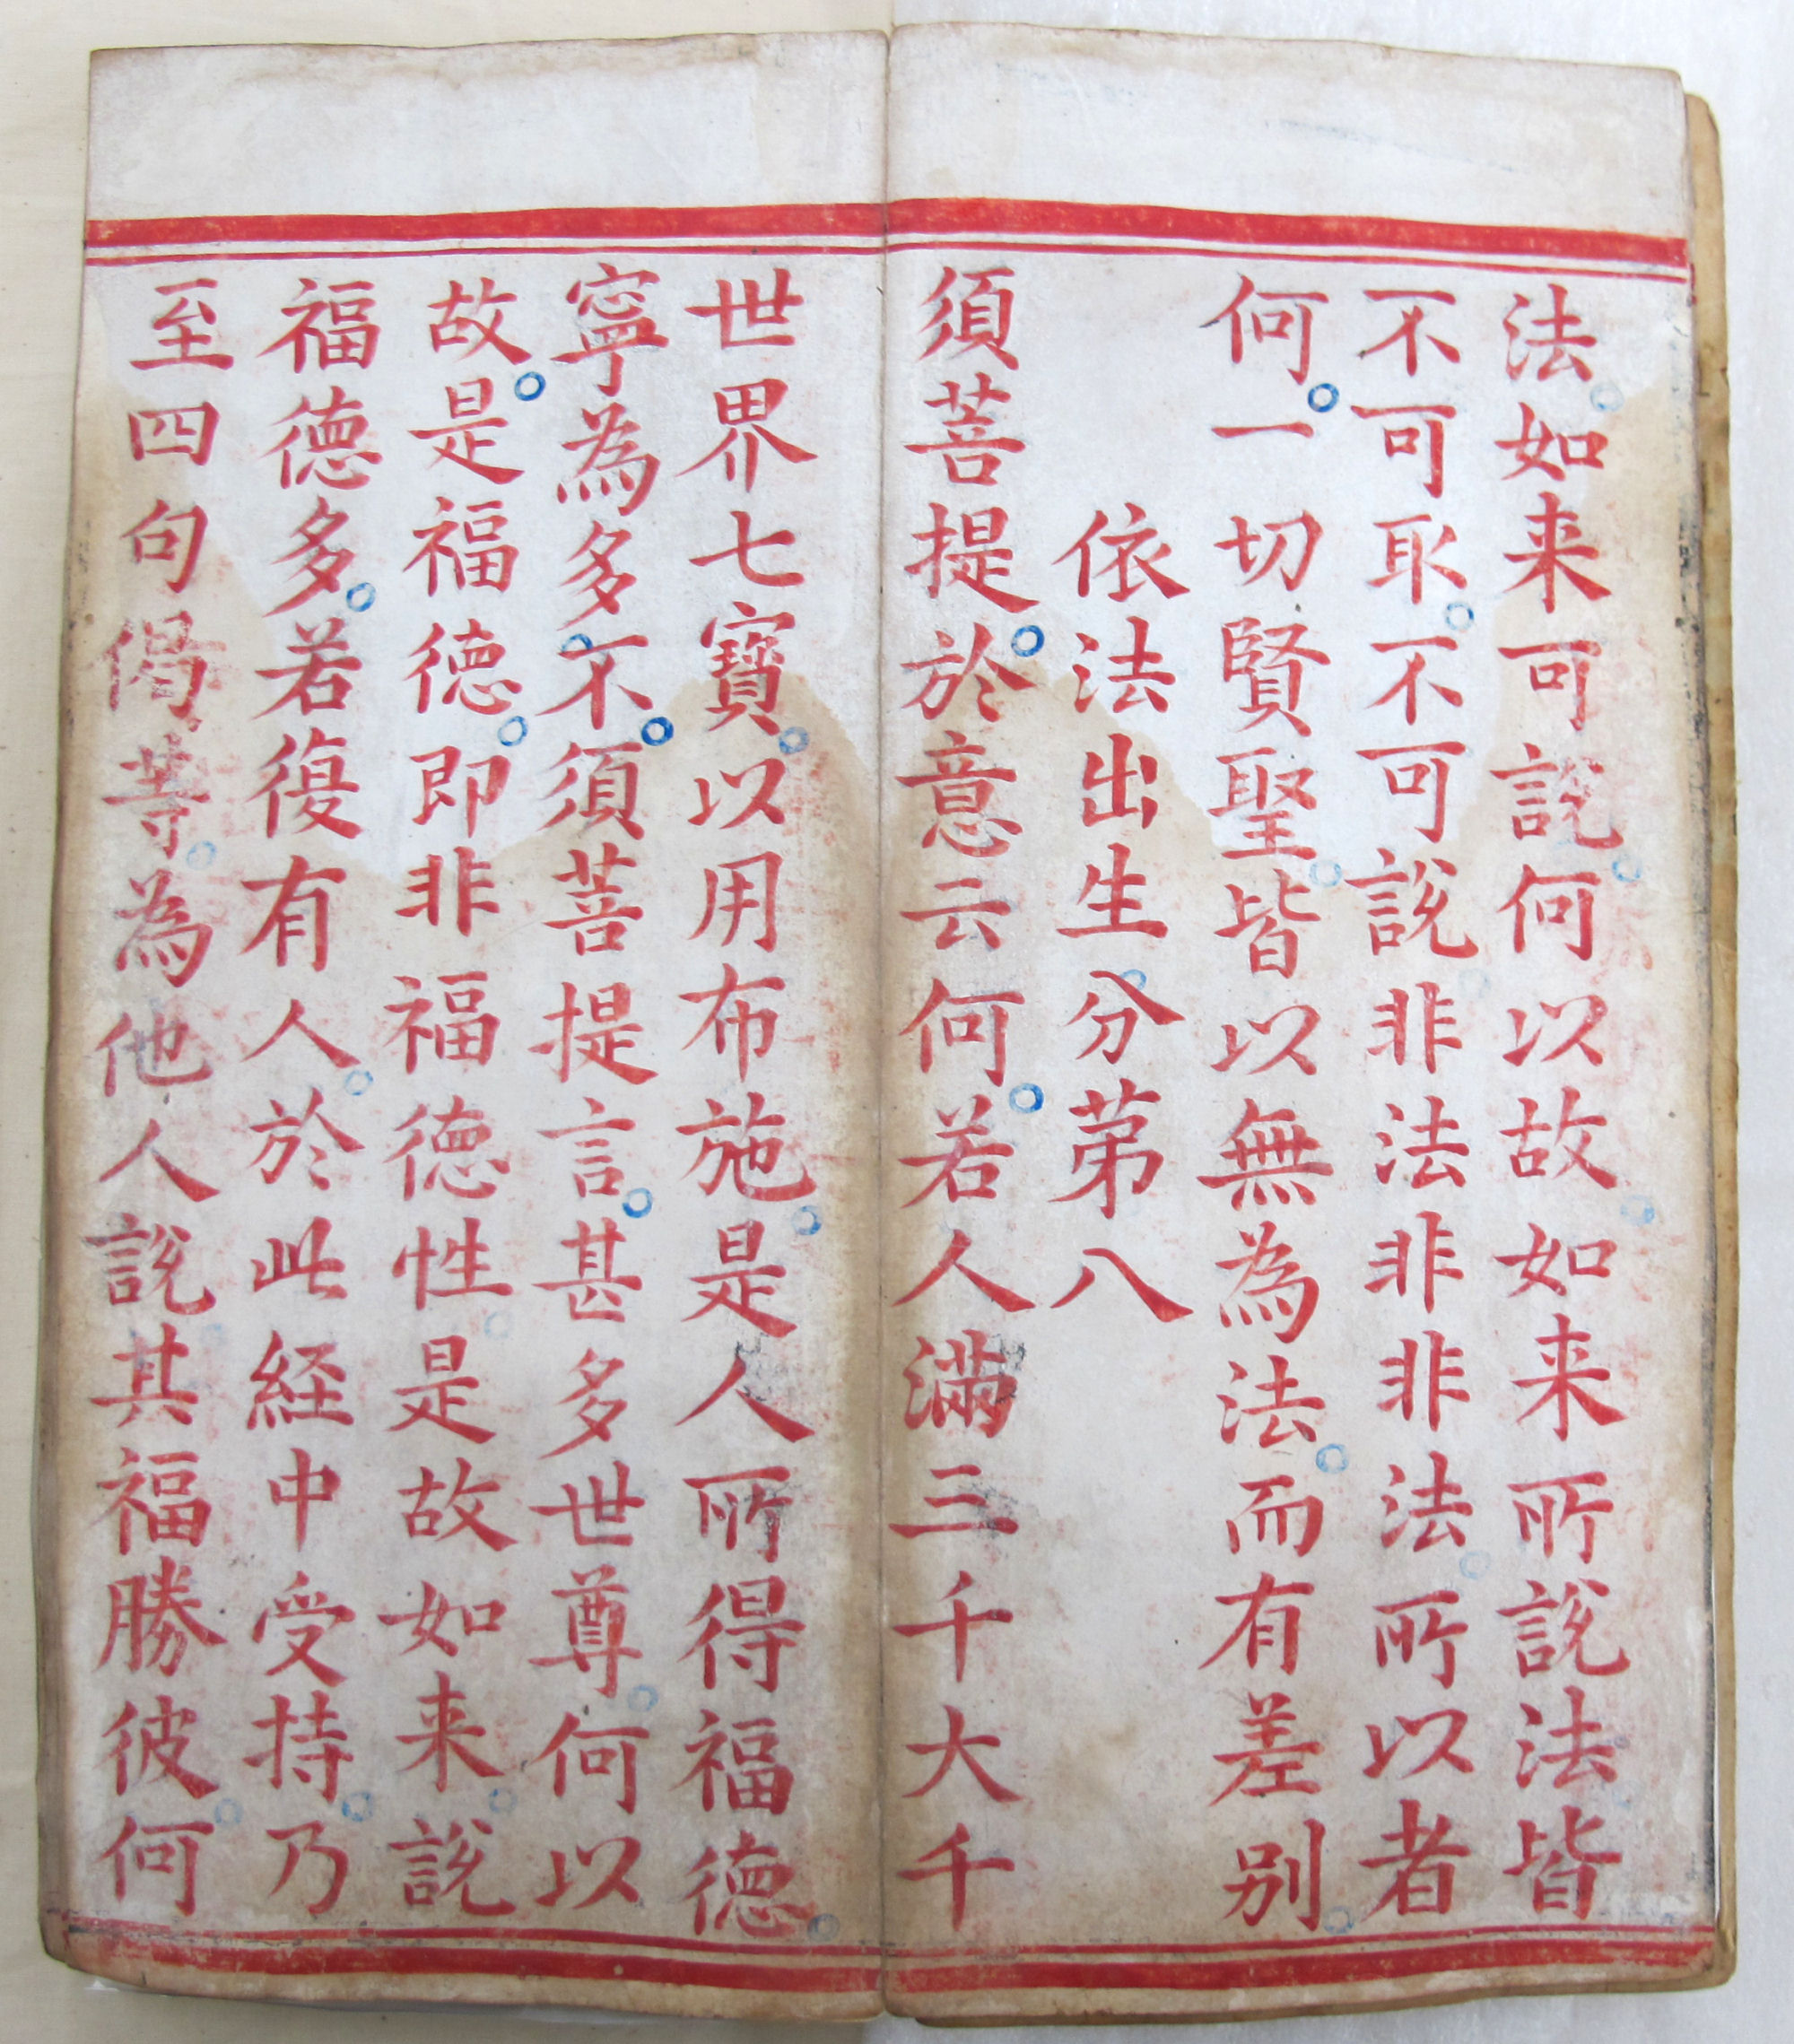 法。如来可說。何以故。如来所說法。皆
不可取。不可說。非法非非法。所以者
何。一切賢聖。皆以無為法。而有差别。
依法出生。分苐八
須菩提。於意云何。若人滿三千大千
世界七寶。以用布施。是人所得福德。
寧為多。不。須菩提言。甚多世尊。何以
故。是福德。即非福德性。是故如来。說
福德多。若復有人。於此経中受持。乃
至四句偈等。為他人說其福勝彼。何